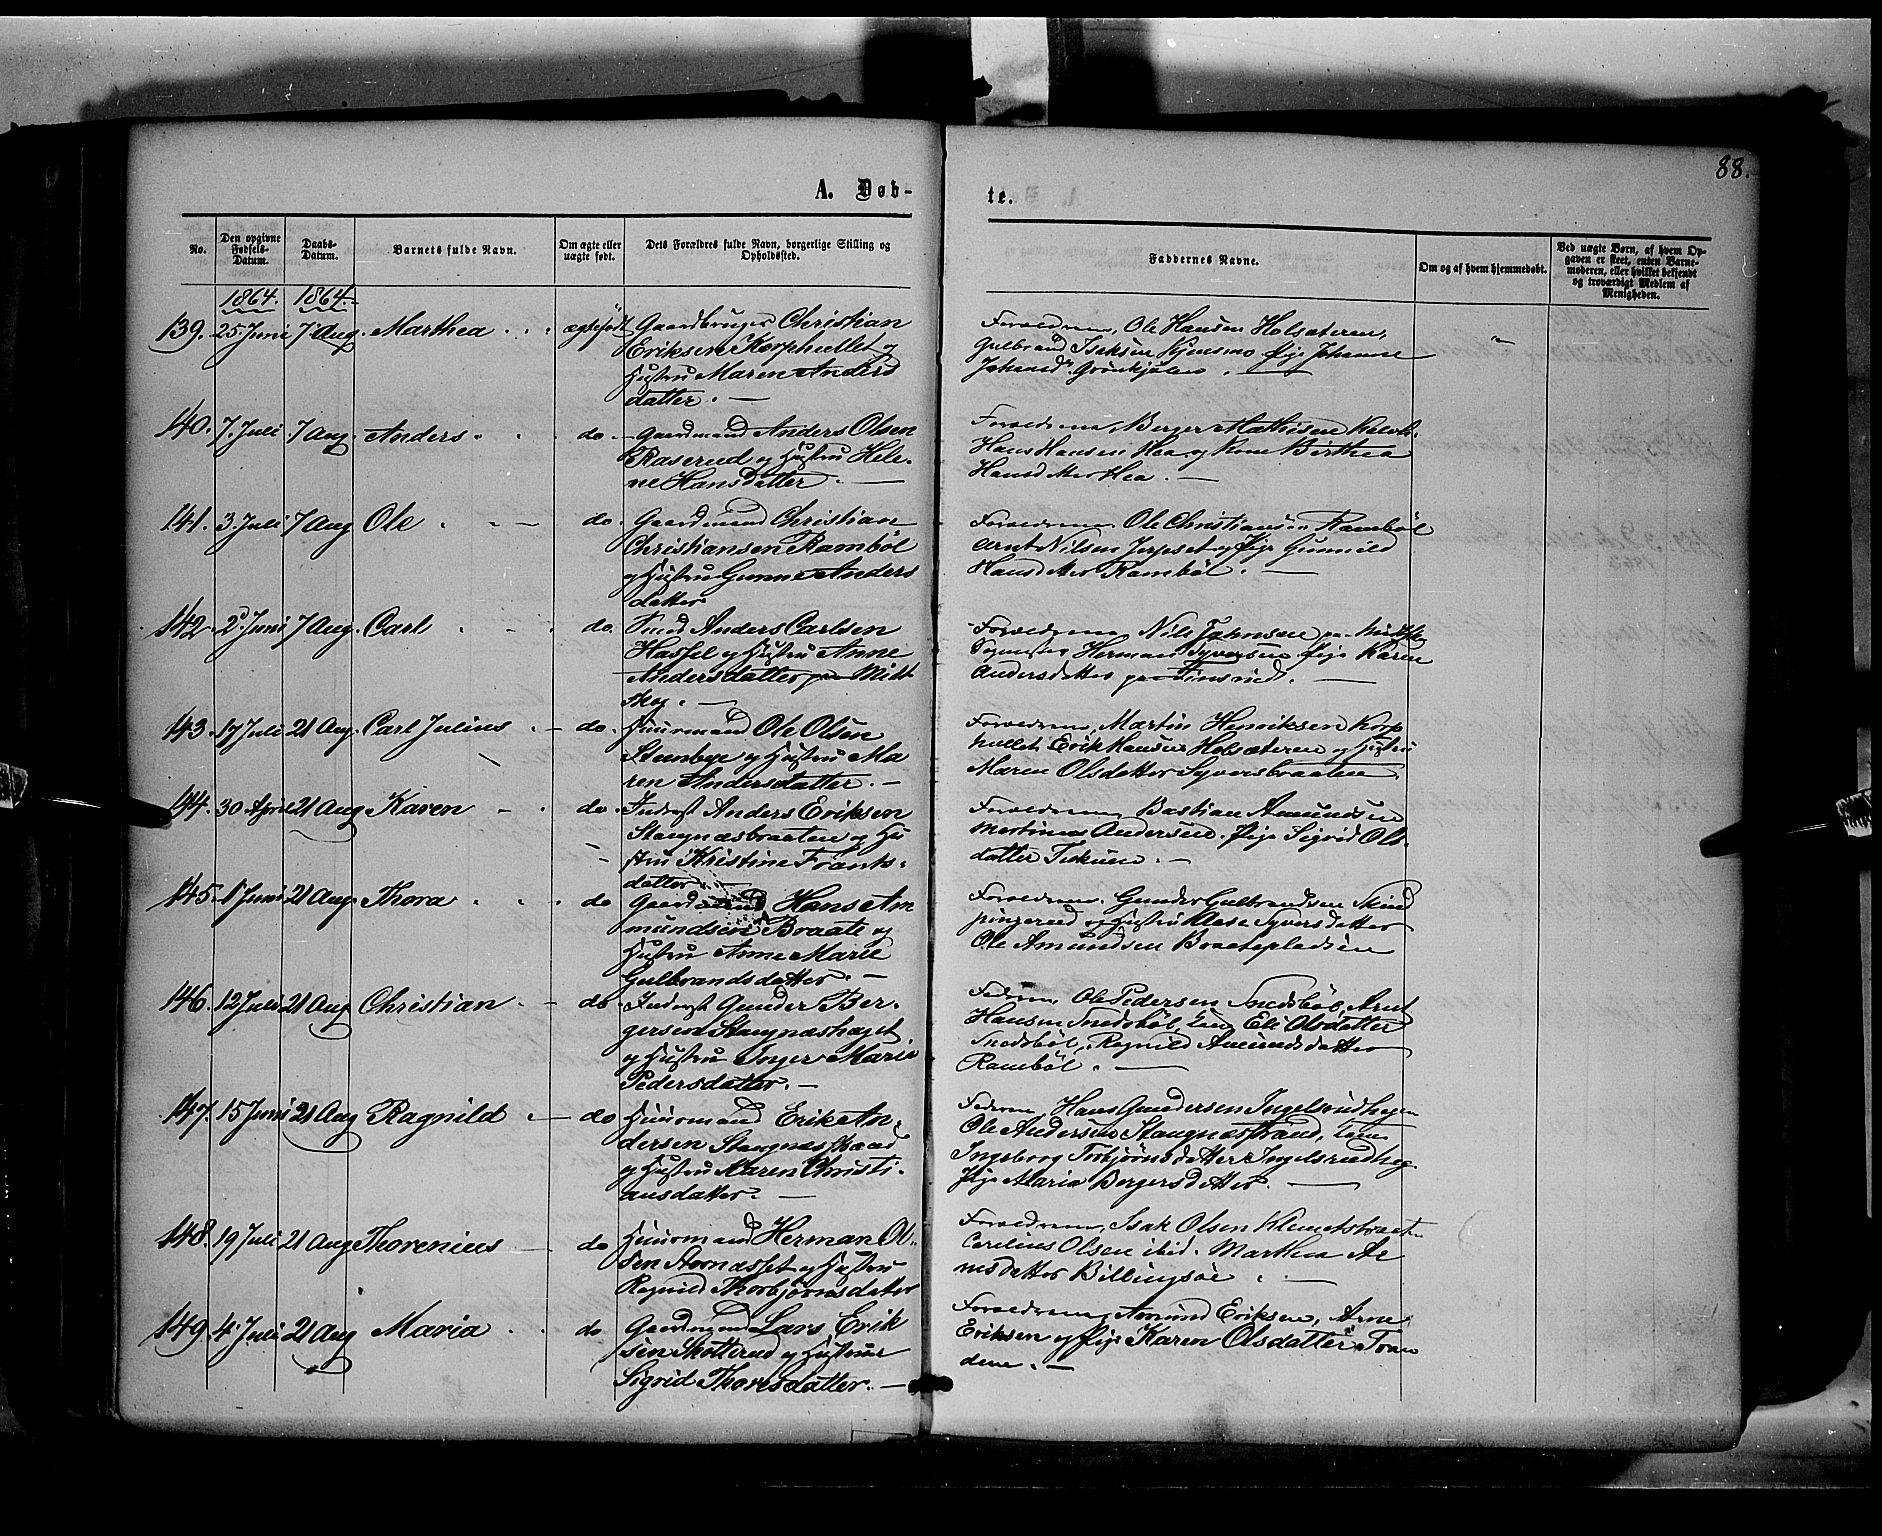 88.
A. Døb-
te.
No.
Den opgivne Fødsels-Datum.
Daabs-Datum.
Barnets fulde Navn.
Om ægte eller uægte født.
Dets Forældres fulde Navn, borgerlige Stilling og Opholdssted.
Faddernes Navne.
Om og af hvem hjemmedøbt.
Ved uægte Børn, af hvem Opgaven er skeet, enten Barnemoderen, eller hvilket bekjendt og troværdigt Medlem af Menigheden.
1864. 1864.
139. 25 Juni 7 Aug. Marthea ægtefødt Gaardbruger Christian
Eriksen Korphullet og
Hustru Maren Anders
datter. —
Forældrene, Ole Hansen Holsæteren,
Gulbrand Isaksen Pige Johanne
Johansd.
140. 7. Juli 7 Aug. Anders do. Gaardmand Anders Olsen
Raserud og Hustru Hele-
ne Hansdatter. —
Forældrene, Berger Mathisen
Hans Hansen Haa og Kone Birthea
Hansdatter Haa. —
141. 3. Juli 7 Aug Ole do. Gaardmand Christian
Christiansen Rambøl
og Hustru Gunne Anders
datter
Forældrene Ole Christiansen Rambøl
Arnt Nilsen og Pige Gunnild
Hansdatter Rambøl. —
142. 2 Juni 7 Aug. Carl do. Anders Carlsen
Hassel og Hustru Anne
Andersdatter paa Mitt
skog. —
Forældrene Nils Johnsen paa
Herman Syversen Pige Karen
Andersdatter paa Finsrud. —
143. 17 Juli 21 Aug. Carl Julius do. Huusmand Ole Olsen
Steenbye og Hustru Ma
ren Andersdatter. —
Forældrene, Martin Henriksen Korp
hullet Erik Hansen Holsæteren og Hustru
Maren Olsdatter Syversbraaten
144. 30 April 21 Aug Karen do. Inderst Anders Eriksen
Stangnæsbraaten og Hu
stru Kristine Frants-
datter. —
Forældrene Bastian Amundsen
Martinus Andersen. Pige Sigrid Ols-
datter. —
145. 1 Juni 21 Aug. Thora do Gaardmand Hans Am
mundsen Braate og
Hustru Anne Marie
Gulbrandsdatter. —
Forældrene. Gunder Gulbrandsen Skind
pungerud og Hustru Syversdatter
Ole Amundsen Braatepladsen
146. 12 Juli 21 Aug Christian do. Inderst Gunder Ber-
gersen Stangnæshaget
og Hustru Inger Maria
Pedersdatter. —
Faderen, Ole Pedersen Snedsbøl, Arnt
Hansen Snedsbøl, Kone Eli Olsdatter
Snedsbøl, Ragnild Amundsdatter
Rambøl. —
147. 15 Juni 21 Aug Ragnild do Huusmand Erik An-
dersen Stangnæsstrand
og Hustru Karen Christi-
ansdatter. —
Faderen, Hans Gundersen Ingelsrudhagen
Ole Andersen Stangnæsstrand, Kone
Ingeborg Torbjørnsdatter Ingelsrudhag.
Pige Maria Bergersdatter. —
148. 19 Juli 21 Aug Thorenius do Huusmand Herman Ol-
sen Aarnæsset og Hustru
Ragnild Thorbjørnsdatter
Forældrene, Isak Olsen
Carelius Olsen ibid. Marthea Ar
nesdatter Billingsøe. —
149 4. Juli 21 Aug Maria do Gaardmand Lars Erik
sen Skotterud og Hustrue
Sigrid Thoresdatter. —
Forældrene, Amund Eriksen, Arne
Eriksen og Pige Karen Olsdatter Tran
dene. —